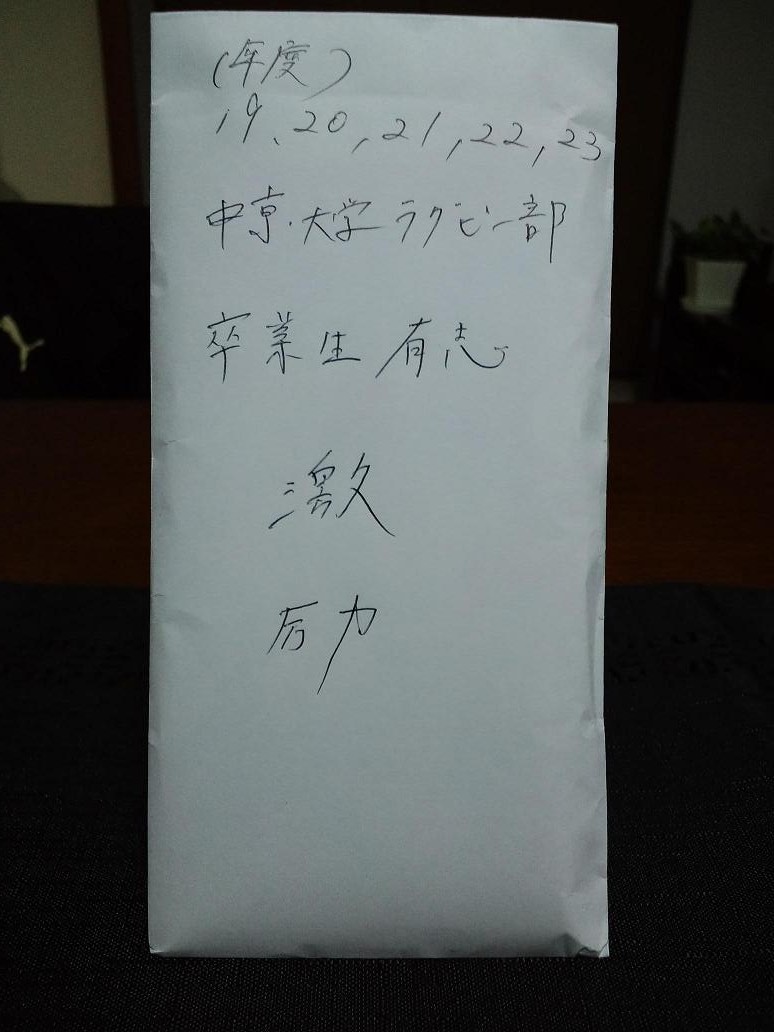 (年度)
19、20,21,22,23
中京大学ラグビー部
卒業生有志
激
励